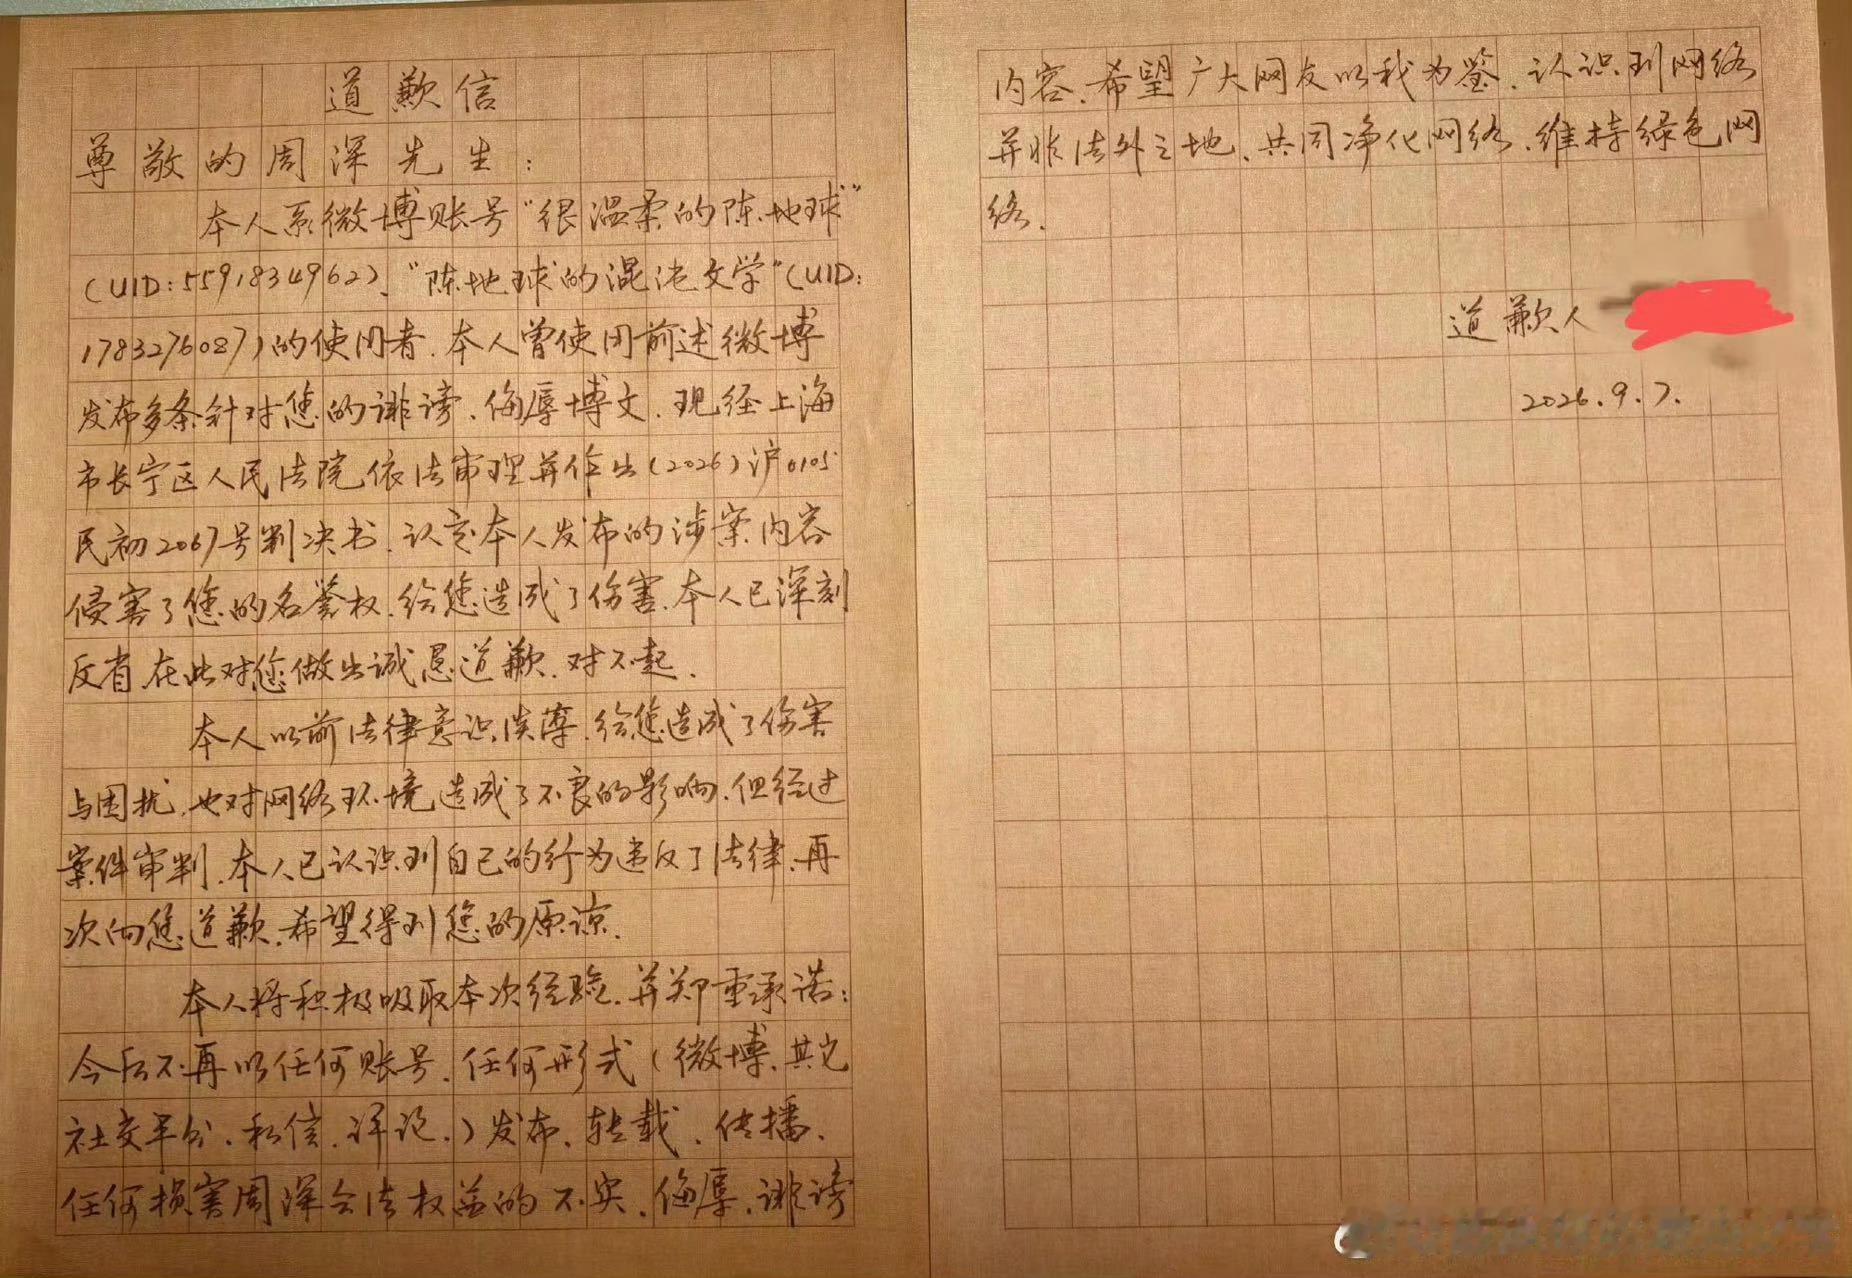 道歉信
尊敬的周深先生：
本人系微博账号“很温柔的陈地球”
(UID:5591834962)、“陈地球的混沌文学”(UID:
1783276087)的使用者,本人曾使用前述微博
发布多条针对您的诽谤、侮辱博文,现经上海
市长宁区人民法院依法审理并作出(2026)沪0105
民初2067号判决书,认定本人发布的涉案内容
侵害了您的名誉权,给您造成了伤害,本人已深刻
反省,在此对您做出诚恳道歉,对不起.
本人以前法律意识淡薄,给您造成了伤害
与困扰,也对网络环境造成了不良的影响,但经过
案件审判,本人已认识到自己的行为违反了法律,再
次向您道歉,希望得到您的原谅.
本人将积极吸取本次经验,并郑重承诺：
今后不再以任何账号、任何形式(微博、其它
社交平台、私信、评论、)发布、转载、传播、
任何损害周深合法权益的不实、侮辱、诽谤
内容,希望广大网友以我为鉴,认识到网络
并非法外之地,共同净化网络,维持绿色网
络.
道歉人
2026.9.7.